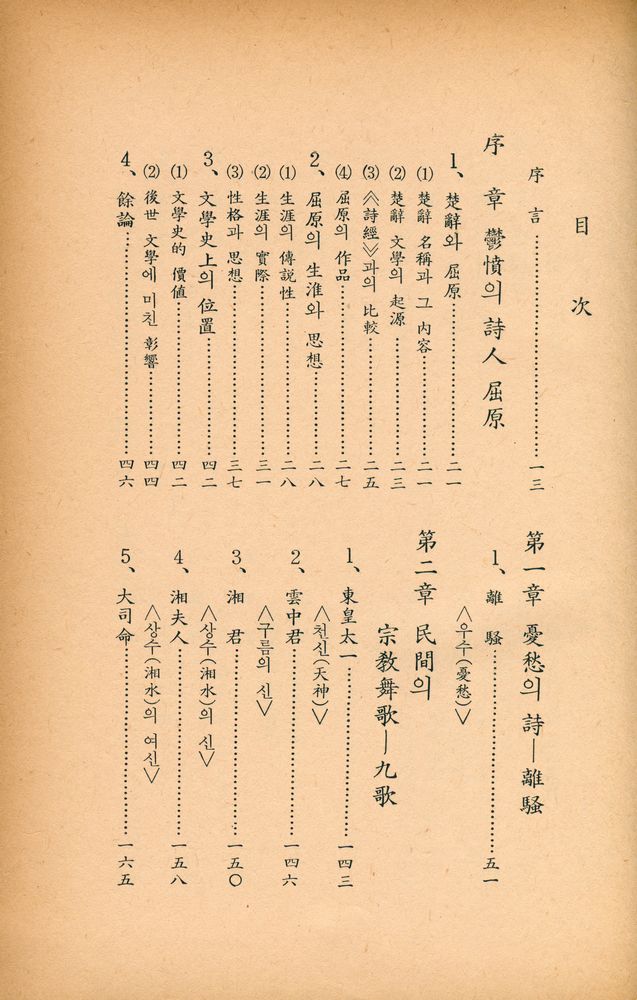 目次
序言……………………………一三
序章 鬱憤의 詩人 屈原
1、楚辭와 屈原……………………二一
(1) 楚辭 名稱과 그 內容……………二一
(2) 楚辭 文學의 起源………………二三
(3) 《詩經》과의 比較………………二五
(4) 屈原의 作品……………………二七
2、屈原의 生淮와 思想……………二八
(1) 生涯의 傳說性…………………二八
(2) 生涯의 實際……………………三一
(3) 性格과 思想……………………三七
3、文學史上의 位置………………四二
(1) 文學史的 價値…………………四二
(2) 後世 文學에 미친 彰響…………四四
4、餘論……………………………四六
第一章 憂愁의 詩—離騷
1、離騷……………………………五一
〈우수(憂愁)〉
第二章 民間의
宗敎舞歌—九歌
1、東皇太一………………………一四三
〈천신(天神)〉
2、雲中君…………………………一四六
〈구름의 신〉
3、湘君……………………………一五〇
〈상수(湘水)의 신〉
4、湘夫人…………………………一五八
〈상수(湘水)의 여신〉
5、大司命…………………………一六五